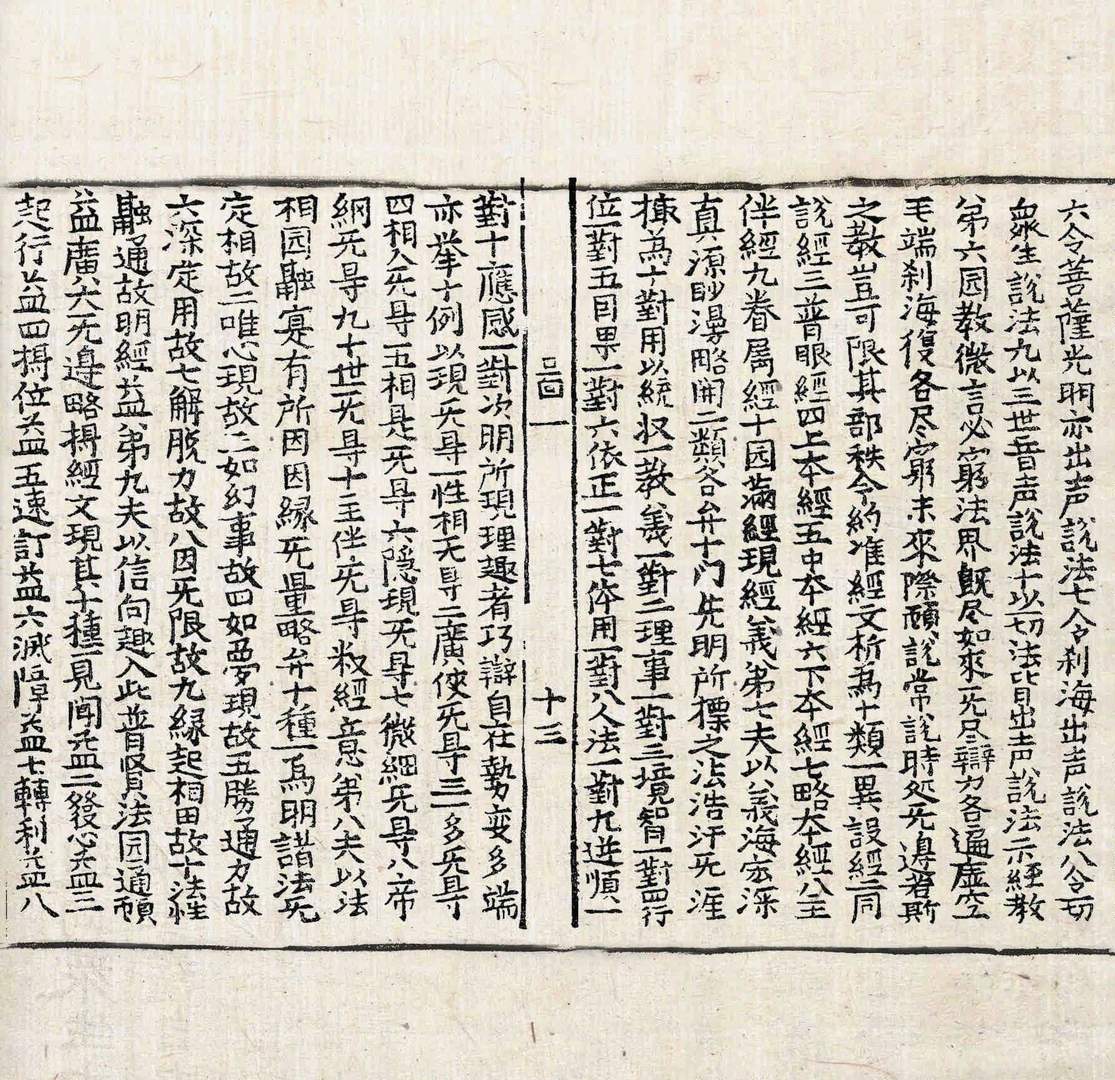 六令菩薩光明亦出声說法七令刹海出声說法八令一切
衆生說法九以三世音声說法十以一切法皆出声說法示経教
苐六园教微言必窮法界旣尽如來旡尽辯力各遍虚空
毛端刹海復各尽窮未來際頓說常說時処旡邊者斯
之教豈可限其部秩今約准經文析為十類一異設經二同
說經三普眼經四上本經五中本經六下本經七略本經八主
伴經九眷属經十园滿經現經義苐七夫以義海宏深
真源眇漫略開二類各弁十门先明所標之法浩汗旡涯
㨿為十對用以統収一教義一對二理事一對三境智一對四行
位一對五因果一對六依正一對七体用一對八人法一對九逆順一
 一
十三
對十應感一對次明所現理趣者巧辯自在勢变多端
亦挙十例以現旡㝵一性相无㝵二廣俠旡㝵三一多旡㝵
四相入旡㝵五相是旡㝵六隠現旡㝵七微細旡㝵八帝
網旡㝵九十世旡㝵十主伴旡㝵叙經意苐八夫以法
相园融寔有所因因縁旡量略弁十種一為明諸法旡
定相故二唯心現故三如幻事故四如夢現故五勝通力故
六深定用故七解脱力故八因旡限故九縁起相由故十法性
融通故明經益苐九夫以信向趣入此普賢法园通頓
益廣大旡邊略㨪經文現其十種一見闻益二發心益三
起行益四㨪位益五速訂益六滅障益七轉利益八